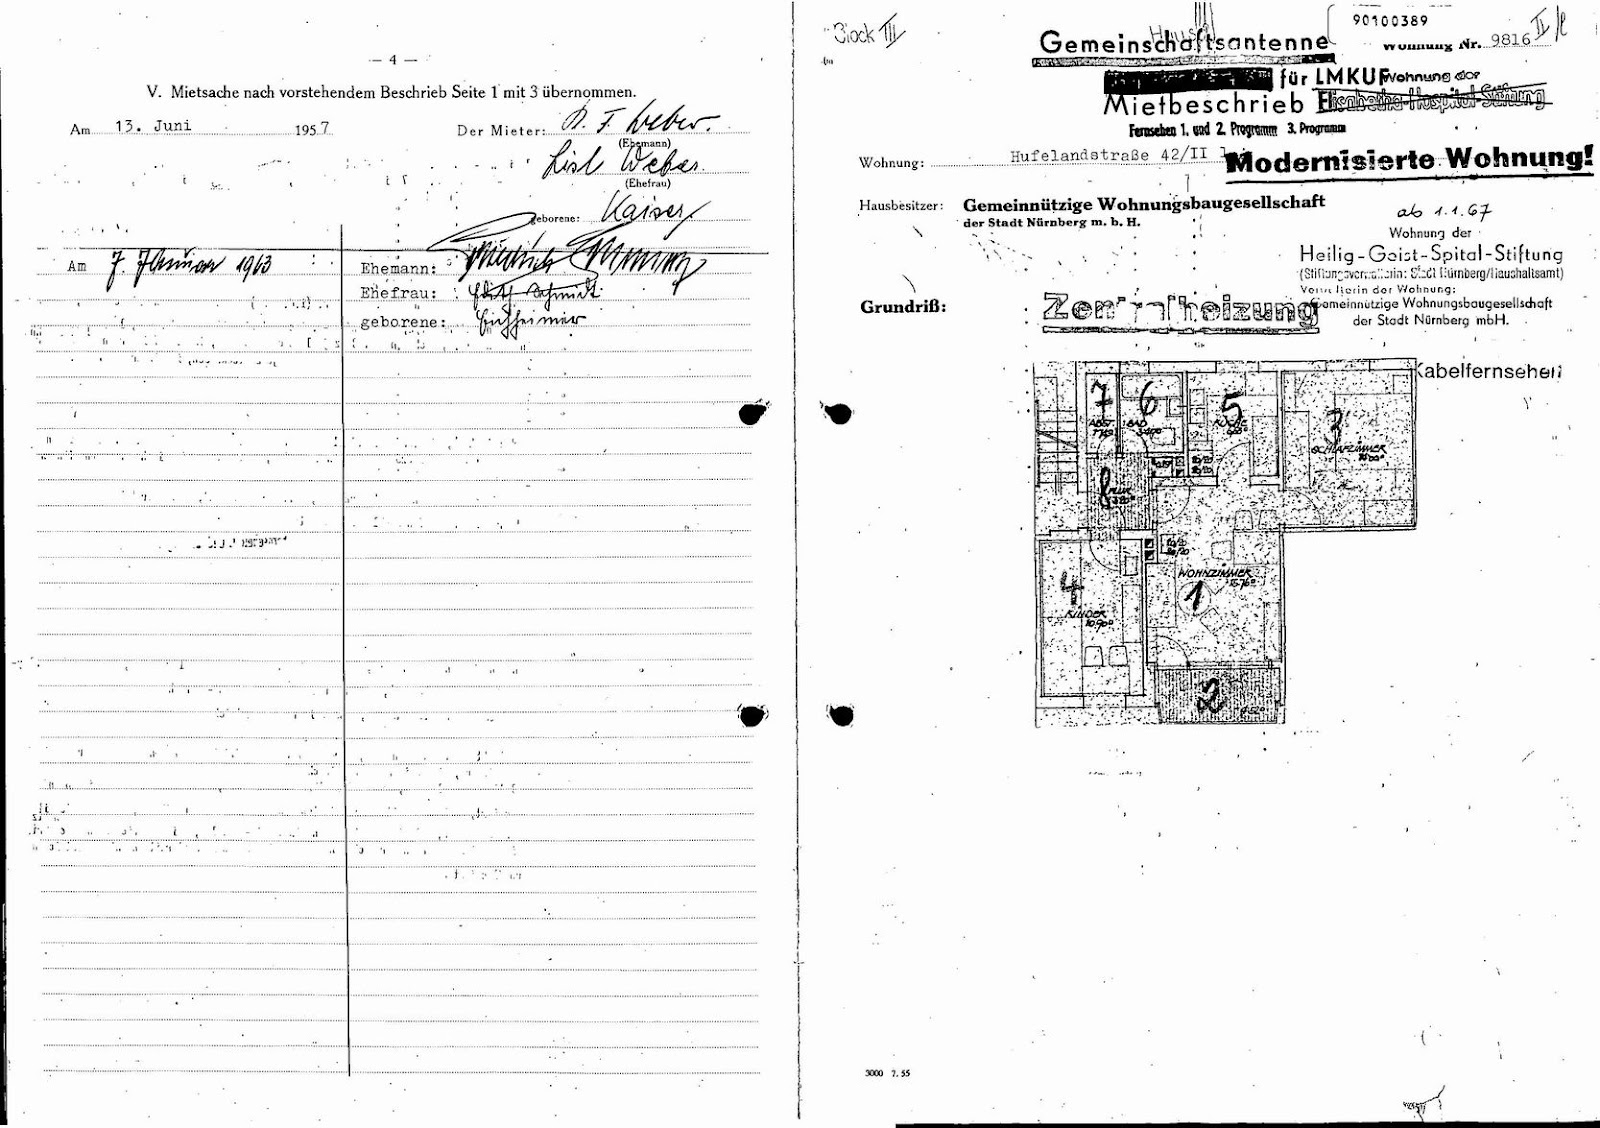 — 4 —
V. Mietsache nach vorstehendem Beschrieb Seite 1 mit 3 übernommen.
Am 13. Juni 1957
Der Mieter: F. Weber.
(Ehemann)
Lisl Weber.
(Ehefrau)
geborene: Kaiser
Am 7. Januar 1963
Ehemann:
Ehefrau: Edith Schmidt
geborene:
Block III
90100389
Gemeinschaftsantenne
Wohnung Nr. 9816
für LMKUF
Wohnung der
Mietbeschrieb
Elisabethe-Hospital-Stiftung
Fernsehen 1. und 2. Programm 3. Programm
Wohnung: Hufelandstraße 42/II
Modernisierte Wohnung!
Hausbesitzer: Gemeinnützige Wohnungsbaugesellschaft
der Stadt Nürnberg m. b. H.
ab 1.1.67
Wohnung der
Heilig-Geist-Spital-Stiftung
(Stiftungsverwalterin: Stadt Nürnberg/Haushaltsamt)
Verwalterin der Wohnung:
Gemeinnützige Wohnungsbaugesellschaft
der Stadt Nürnberg mbH.
Grundriß:
Zentralheizung
Kabelfernsehen
7
ABST.
6
BAD
5
KÜCHE
3
SCHLAFZIMMER
8
FLUR
4
KINDER
10,90
WOHNZIMMER
1
2
3000 7. 55